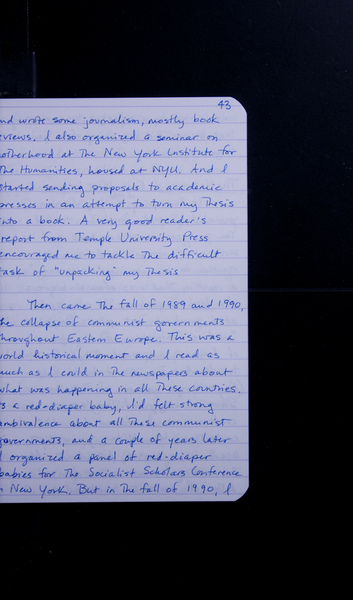 43
nd wrote some journalism, mostly book
eviews. I also organized a seminar on
otherhood at The New York Institute for
The Humanities, housed at NYU. And I
started sending proposals to academic
presses in an attempt to turn my Thesis
into a book. A very good reader's
report from Temple University Press
encouraged me to tackle The difficult
task of "unpacking" my Thesis
Then came The fall of 1989 and 1990,
he collapse of communist governments
hroughout Eastern Europe. This was a
orld historical moment and I read as
uch as I could in The newspapers about
what was happening in all These countries.
s a red-diaper baby, I'd felt strong
ambivalence about all These communist
governments, and a couple of years later
I organized a panel of red-diaper
babies for The Socialist Scholars Conference
n New York. But in The fall of 1990, I